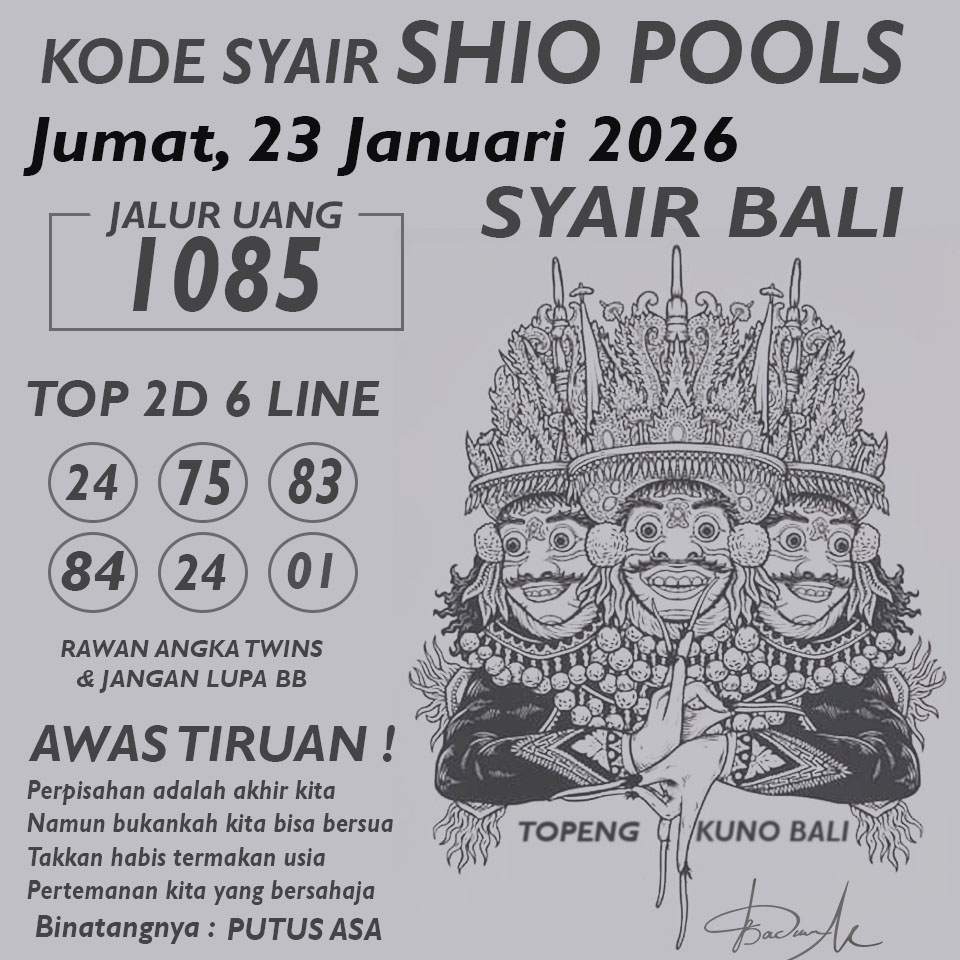 KODE SYAIR SHIO POOLS
Jumat, 23 Januari 2026
SYAIR BALI
JALUR UANG
1085
TOP 2D 6 LINE
24 75 83
84 24 01
RAWAN ANGKA TWINS
& JANGAN LUPA BB
AWAS TIRUAN !
Perpisahan adalah akhir kita
Namun bukankah kita bisa bersua
Takkan habis termakan usia
Pertemanan kita yang bersahaja
Binatangnya : PUTUS ASA
TOPENG KUNO BALI